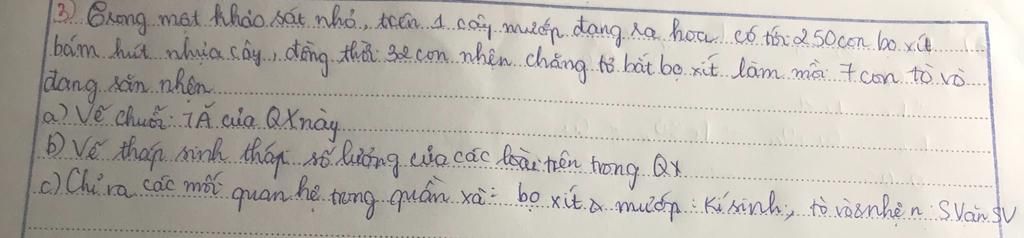 3) Trong một khảo sát nhỏ, trên 1 cây mướp đang ra hoa có tới 250 con bọ xít
bám hút nhựa cây, đồng thời 32 con nhện chăng tơ bắt bọ xít làm mồi 7 con tò vò
đang săn nhện
a) Vẽ chuỗi TĂ của QX này
b) Vẽ tháp sinh tháp số lượng của các loài trên trong QX
c) Chỉ ra các mối quan hệ trong quần xã: bọ xít & mướp: Kí sinh, tò vò & nhện: SV ăn SV